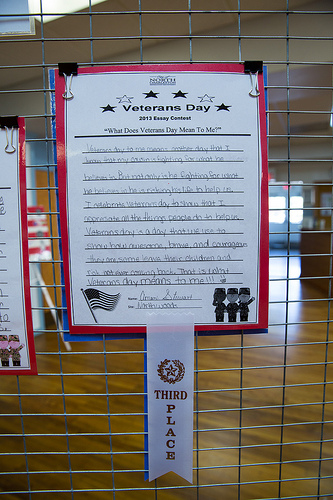 NORTH
Veterans Day
2013 Essay Contest
"What Does Veterans Day Mean To Me?"
Veterans day to me means another day that I
know that my cousin is fighting for what he
believes in. But not only is he fighting for what
he believes in he is risking his life to help us.
I celebrate Veterans day to show that I
appreciate all the things people do to help us.
Veterans day is a day that we use to
show how awesome, brave and courageous
they are some leave their children and
risk not ever coming back. That is what
Veterans day means to me!!!
Name:
Northwoods
THIRD
PLACE